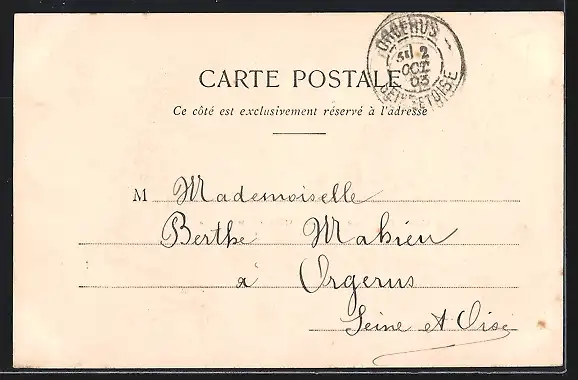 ORGERUS
2
OCT
03
SEINE ET OISE
CARTE POSTALE
Ce côté est exclusivement réservé à l'adresse
M Mademoiselle
Berthe Mahieu
à Orgerus
Seine et Oise